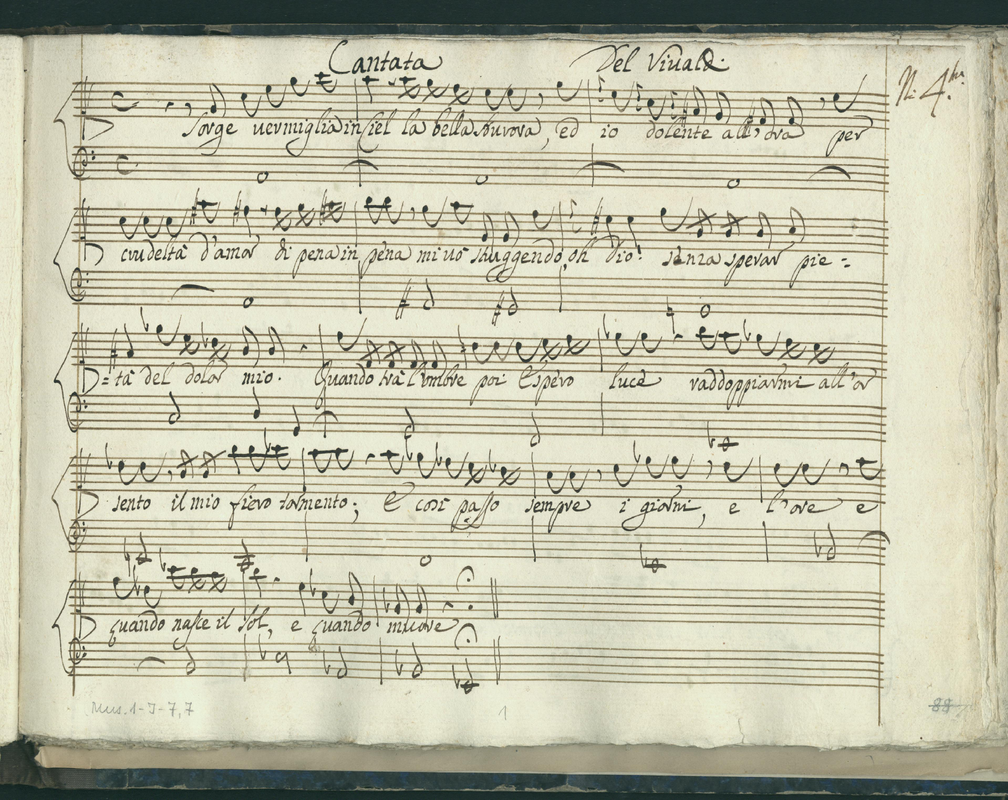 Cantata Del Viuald:
N: 4.
Sorge uermiglia in Ciel la bella Aurora, ed io dolente all'ora per
crudeltà d'amor di pena in pena mi uò struggendo, oh Dio! senza sperar pie-:
:tà del dolor mio. Quando trà l'ombre poi Espero luce raddoppiarmi all'or
sento il mio fiero tormento; E così passo sempre i giorni, e l'ore e
quando nasce il Sol, e quando muore
Mus. 1-J-7,7
1
88